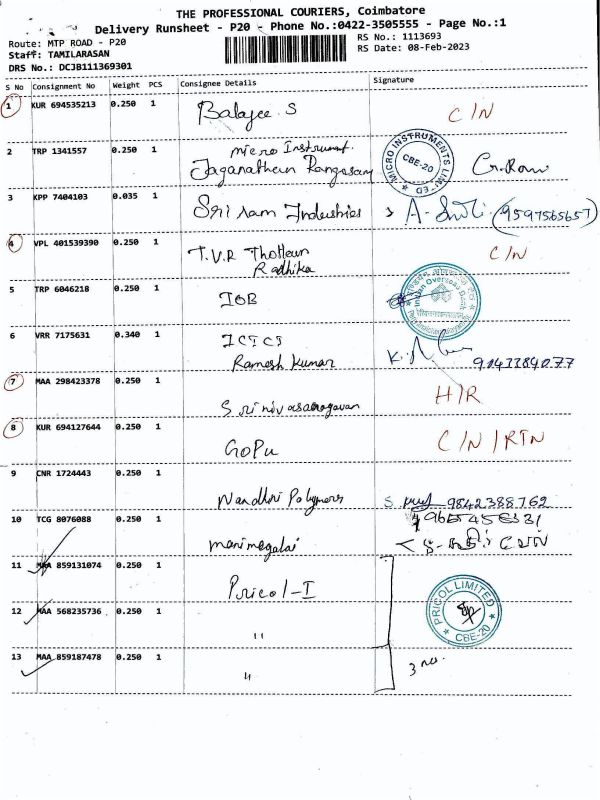 THE PROFESSIONAL COURIERS, Coimbatore
Delivery Runsheet - P20 - Phone No.:0422-3505555 - Page No.:1
Route: MTP ROAD - P20
RS No.: 1113693
Staff: TAMILARASAN
RS Date: 08-Feb-2023
DRS No.: DCJB111369301
S No Consignment No Weight PCS Consignee Details Signature
1 KUR 694535213 0.250 1 Balajee S C/N
2 TRP 1341557 0.250 1 micro Instrument.
Jaganathan Rangasam
MICRO INSTRUMENTS LIMITED
CBE-20
3 KPP 7404103 0.035 1 Sri ram Industries
(9597565657)
4 VPL 401539390 0.250 1 T.V.R Thottam C/N
Radhika
5 TRP 6046218 0.250 1 IOB
Indian Overseas Bank
6 VRR 7175631 0.340 1 ICICI
Ramesh Kumar
7 MAA 298423378 0.250 1 Srinivasaragavan H/R
8 KUR 694127644 0.250 1 GOPU C/N/RTN
9 CNR 1724443 0.250 1 Nandhri Polymers 9842388762
10 TCG 8076088 0.250 1 manimegalai
11 MAA 859131074 0.250 1 Pricol-I
PRICOL LIMITED
CBE-20
12 MAA 568235736 0.250 1 "
13 MAA 859187478 0.250 1 "
3 no.